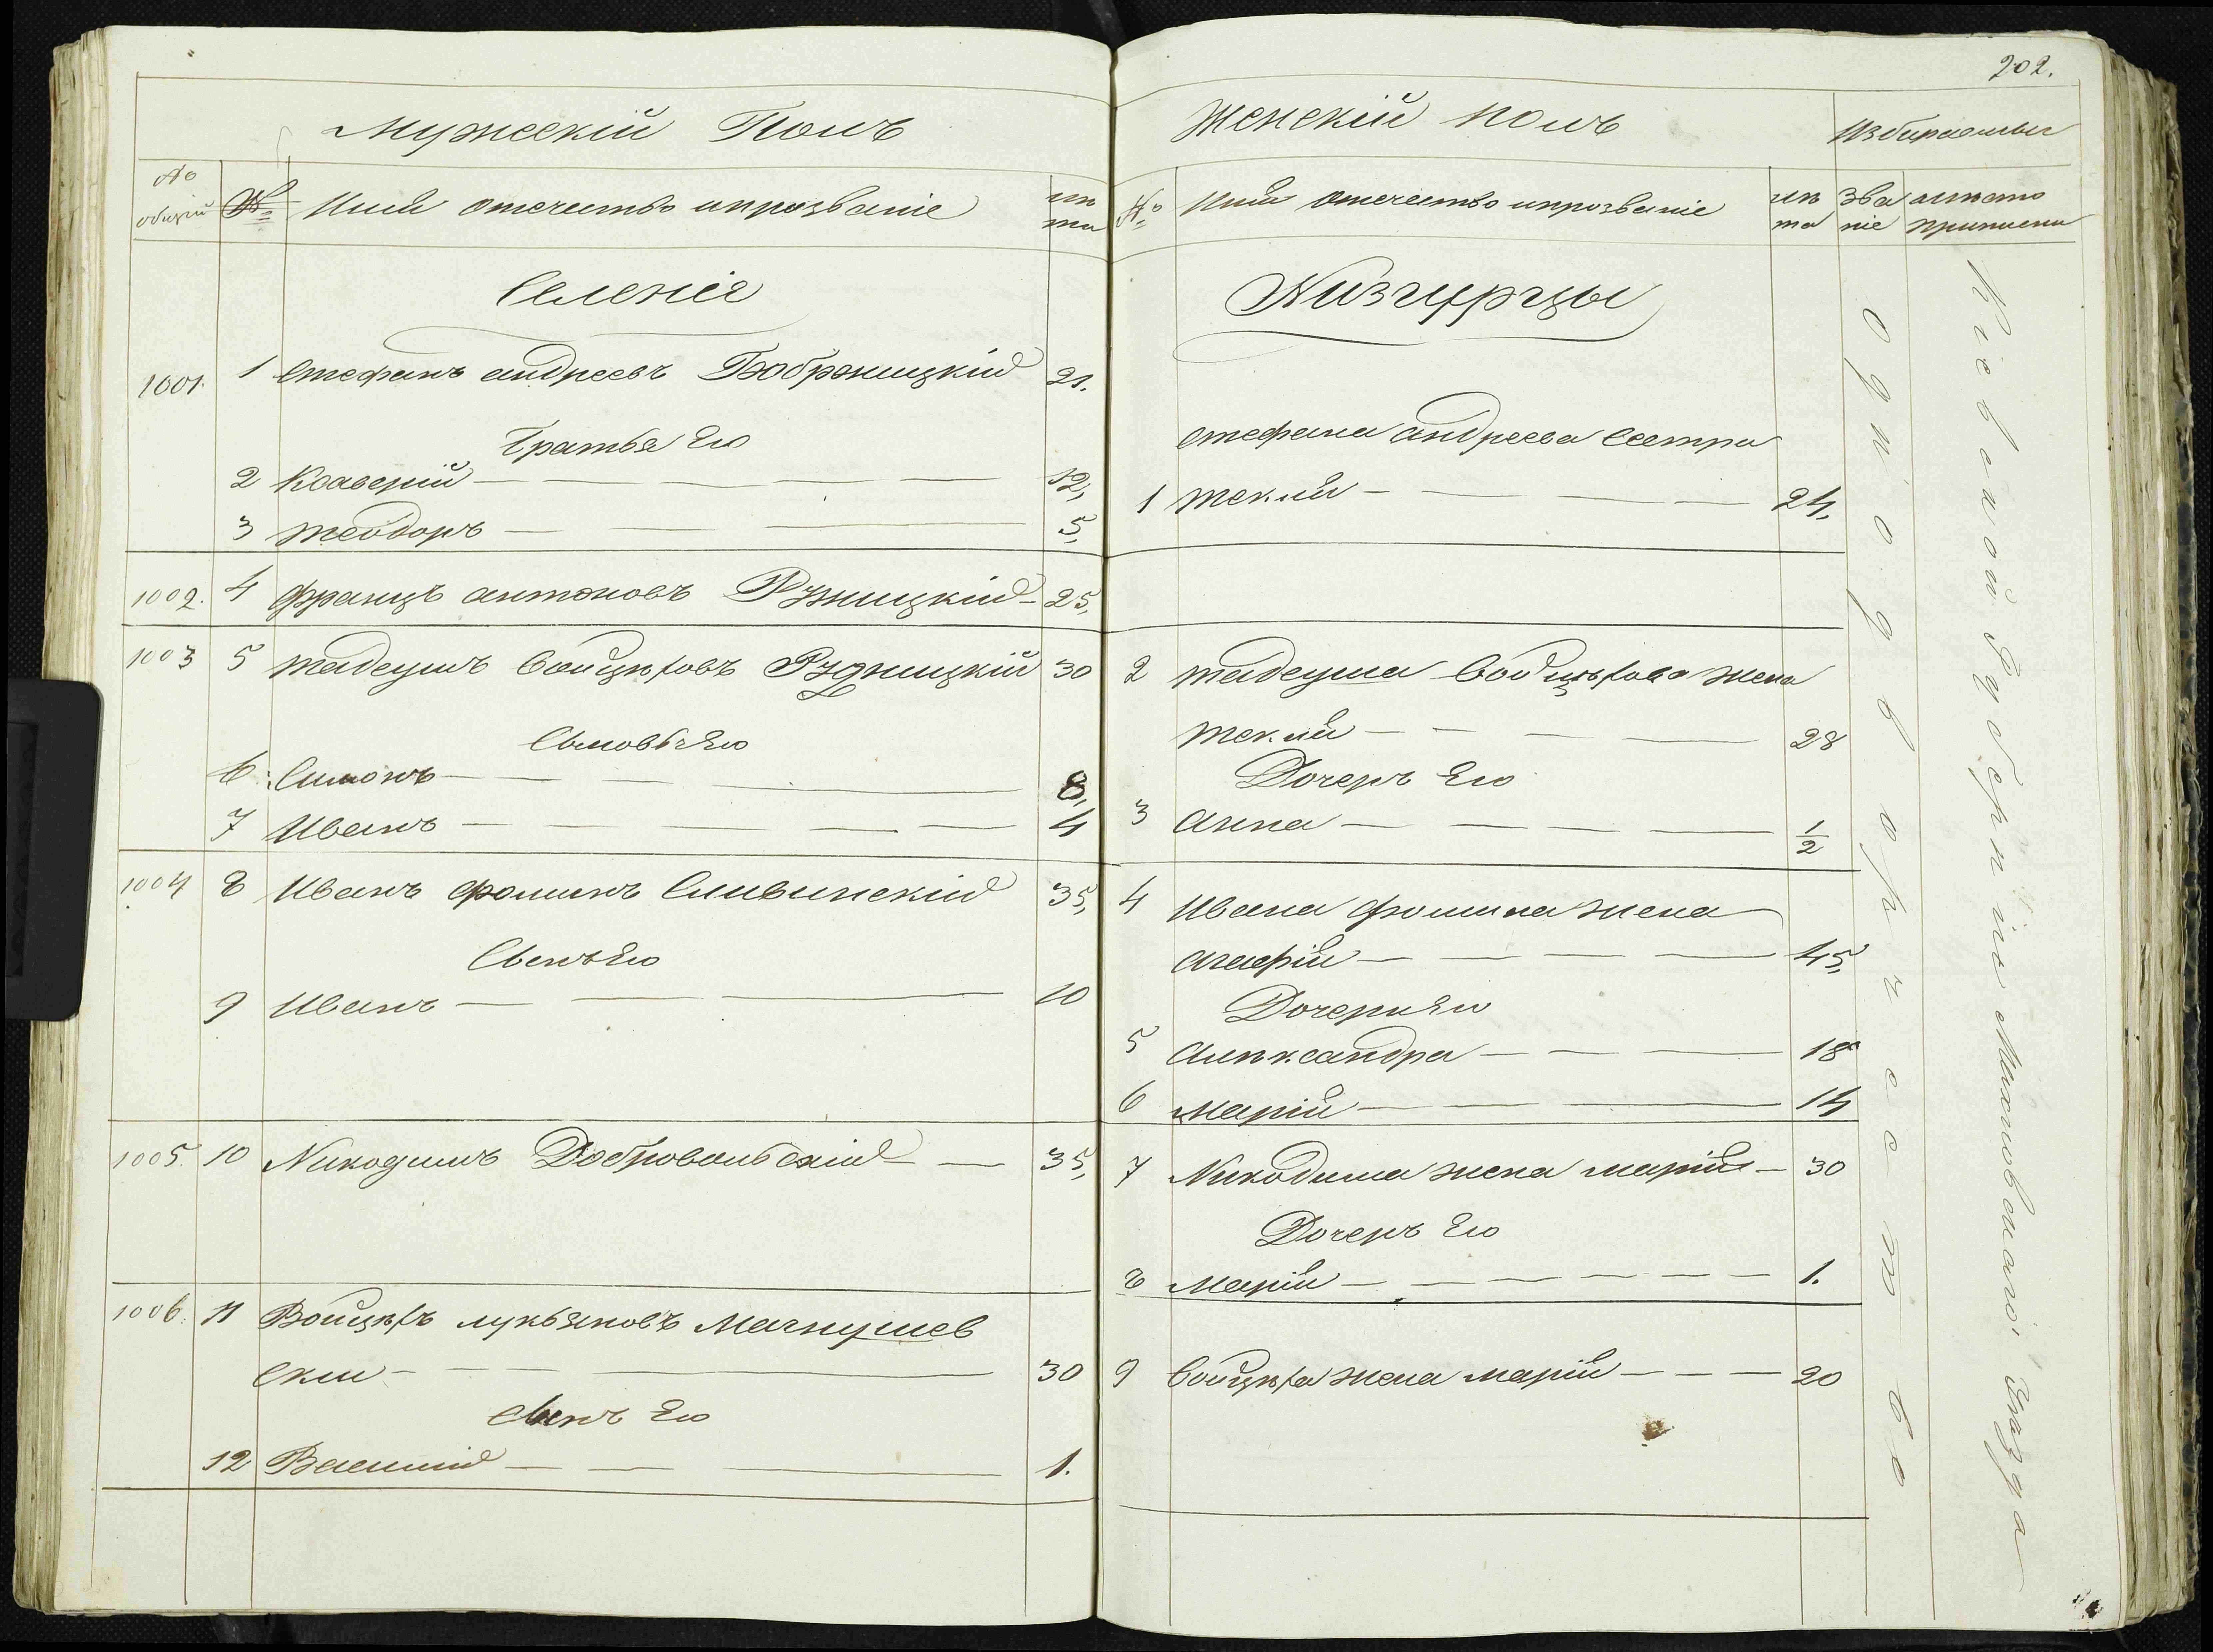 202.
Мужескій Полъ
№ общій
№
Имя отечество и прозваніе
лѣ
та
Селеніе
1001. 1 Стефанъ андреевъ Бобржицкій 21.
Братья Его
2 Ксаверій — — — — — 12,
3 теодоръ — — — 5,
1002. 4 францъ антоновъ Ружицкій — 25,
1003 5 тадеушъ Войцѣховъ Рудницкій 30
Сыновья Его
6 Симонъ — — — — 8,
7 Иванъ — — — — — 4
1004 8 Иванъ фоминъ Сливинскій 35,
Сынъ Его
9 Иванъ — — — 10
1005. 10 Никодимъ Добровольскій — — 35,
1006. 11 Войцѣхъ лукьяновъ Магнушев
ски — — — — 30
Сынъ Его
12 Василій — — — 1.
Женскій полъ
Избираемые
№
Имя отечество и прозваніе
лѣ
та
Зва
ніе
мѣсто
приписки
Низгурцы
стефана андреева Сестра
1 текля — — — — 24,
2 тадеуша Войцѣхова жена
текля — — — — 28
Дочерь Его
3 анна — — — — 1/2
4 Ивана фомина жена
агафія — — — — 45,
Дочери Его
5 Александра — — — 18
6 марія — — — 14
7 Никодима жена марія — 30
Дочерь Его
8 Марія — — — — — — 1.
9 Войцѣха жена марія — — — 20
Однодворчество
Кіевской Губерніи Махновскаго Уѣзда